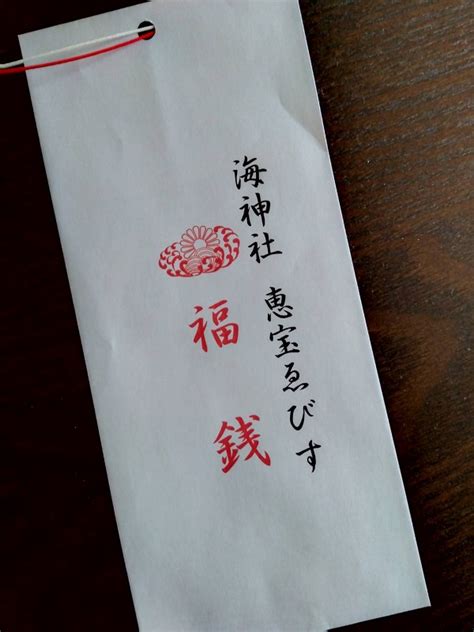 海神社 恵宝ゑびす
福銭